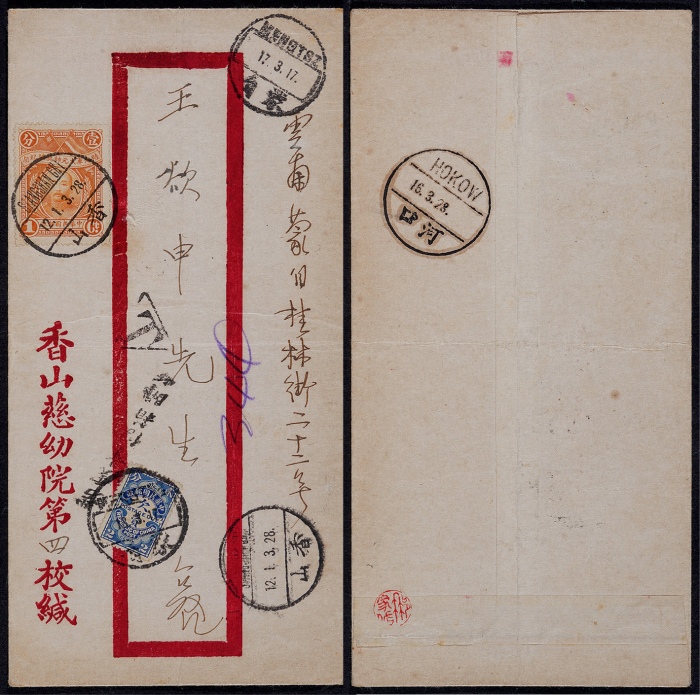 雲南蒙自桂林街二十二号
王欲申先生
香山慈幼院第四校緘
分 壹
1
MENGTSZ
17.3.17.
自蒙
12.1.3.28.
山香
12.1.3.28.
山香
T
344
2
HOKOW
16.3.28.
口河